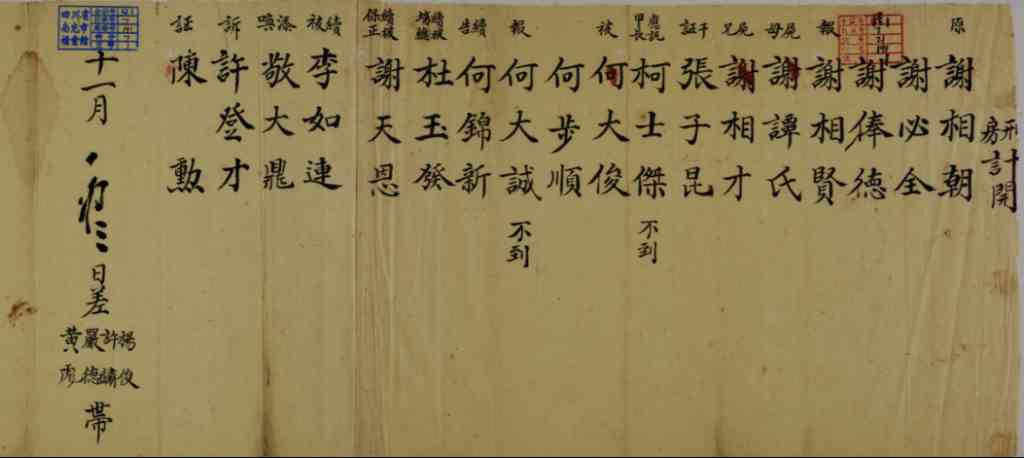 刑房計開
原 謝相朝
謝必全
謝俸德
報 謝相賢
屍母 謝譚氏
屍兄 謝相才
干証 張子昆
甲長 柯士傑 不到
被 何大俊
何步順
報 何大誠 不到
續告 何錦新
續被坊總 杜玉發
續被保正 謝天恩
續被 李如連
添喚 敬大鼎
訴 許登才
証 陳勲
十一月 日差 楊俊 許 嚴德 黃廖 帶